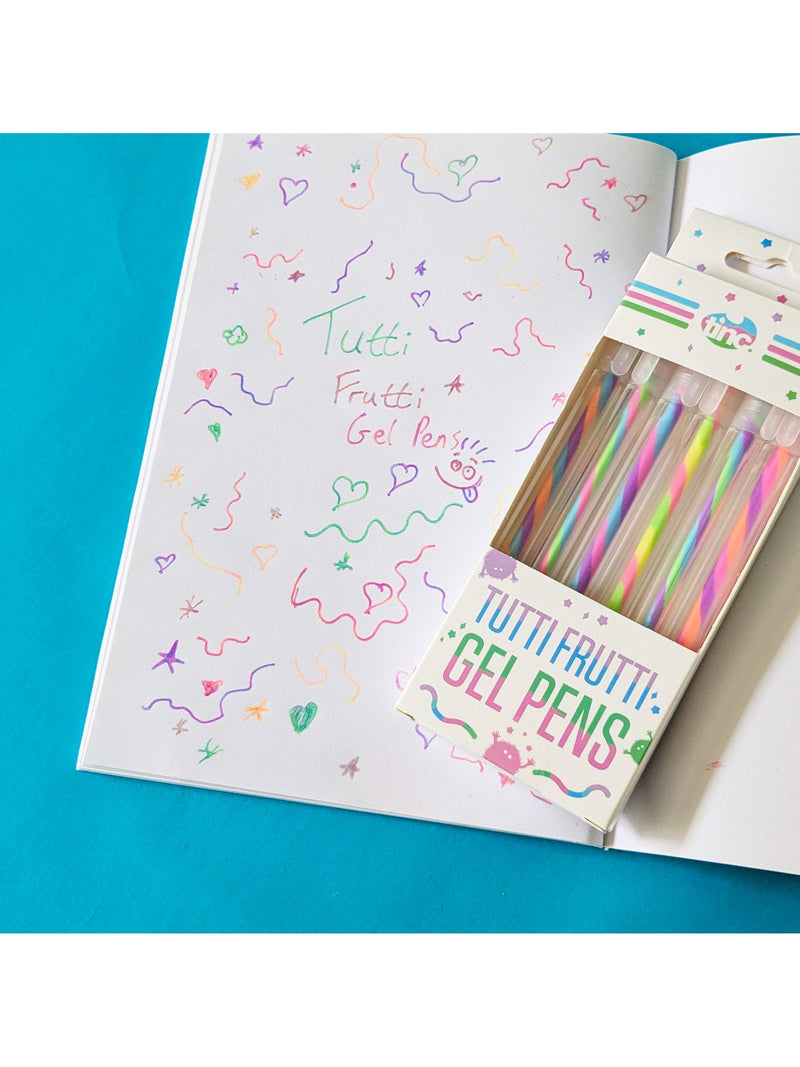 Tutti
Frutti
Gel Pens
tinc.
TUTTI FRUTTI
GEL PENS